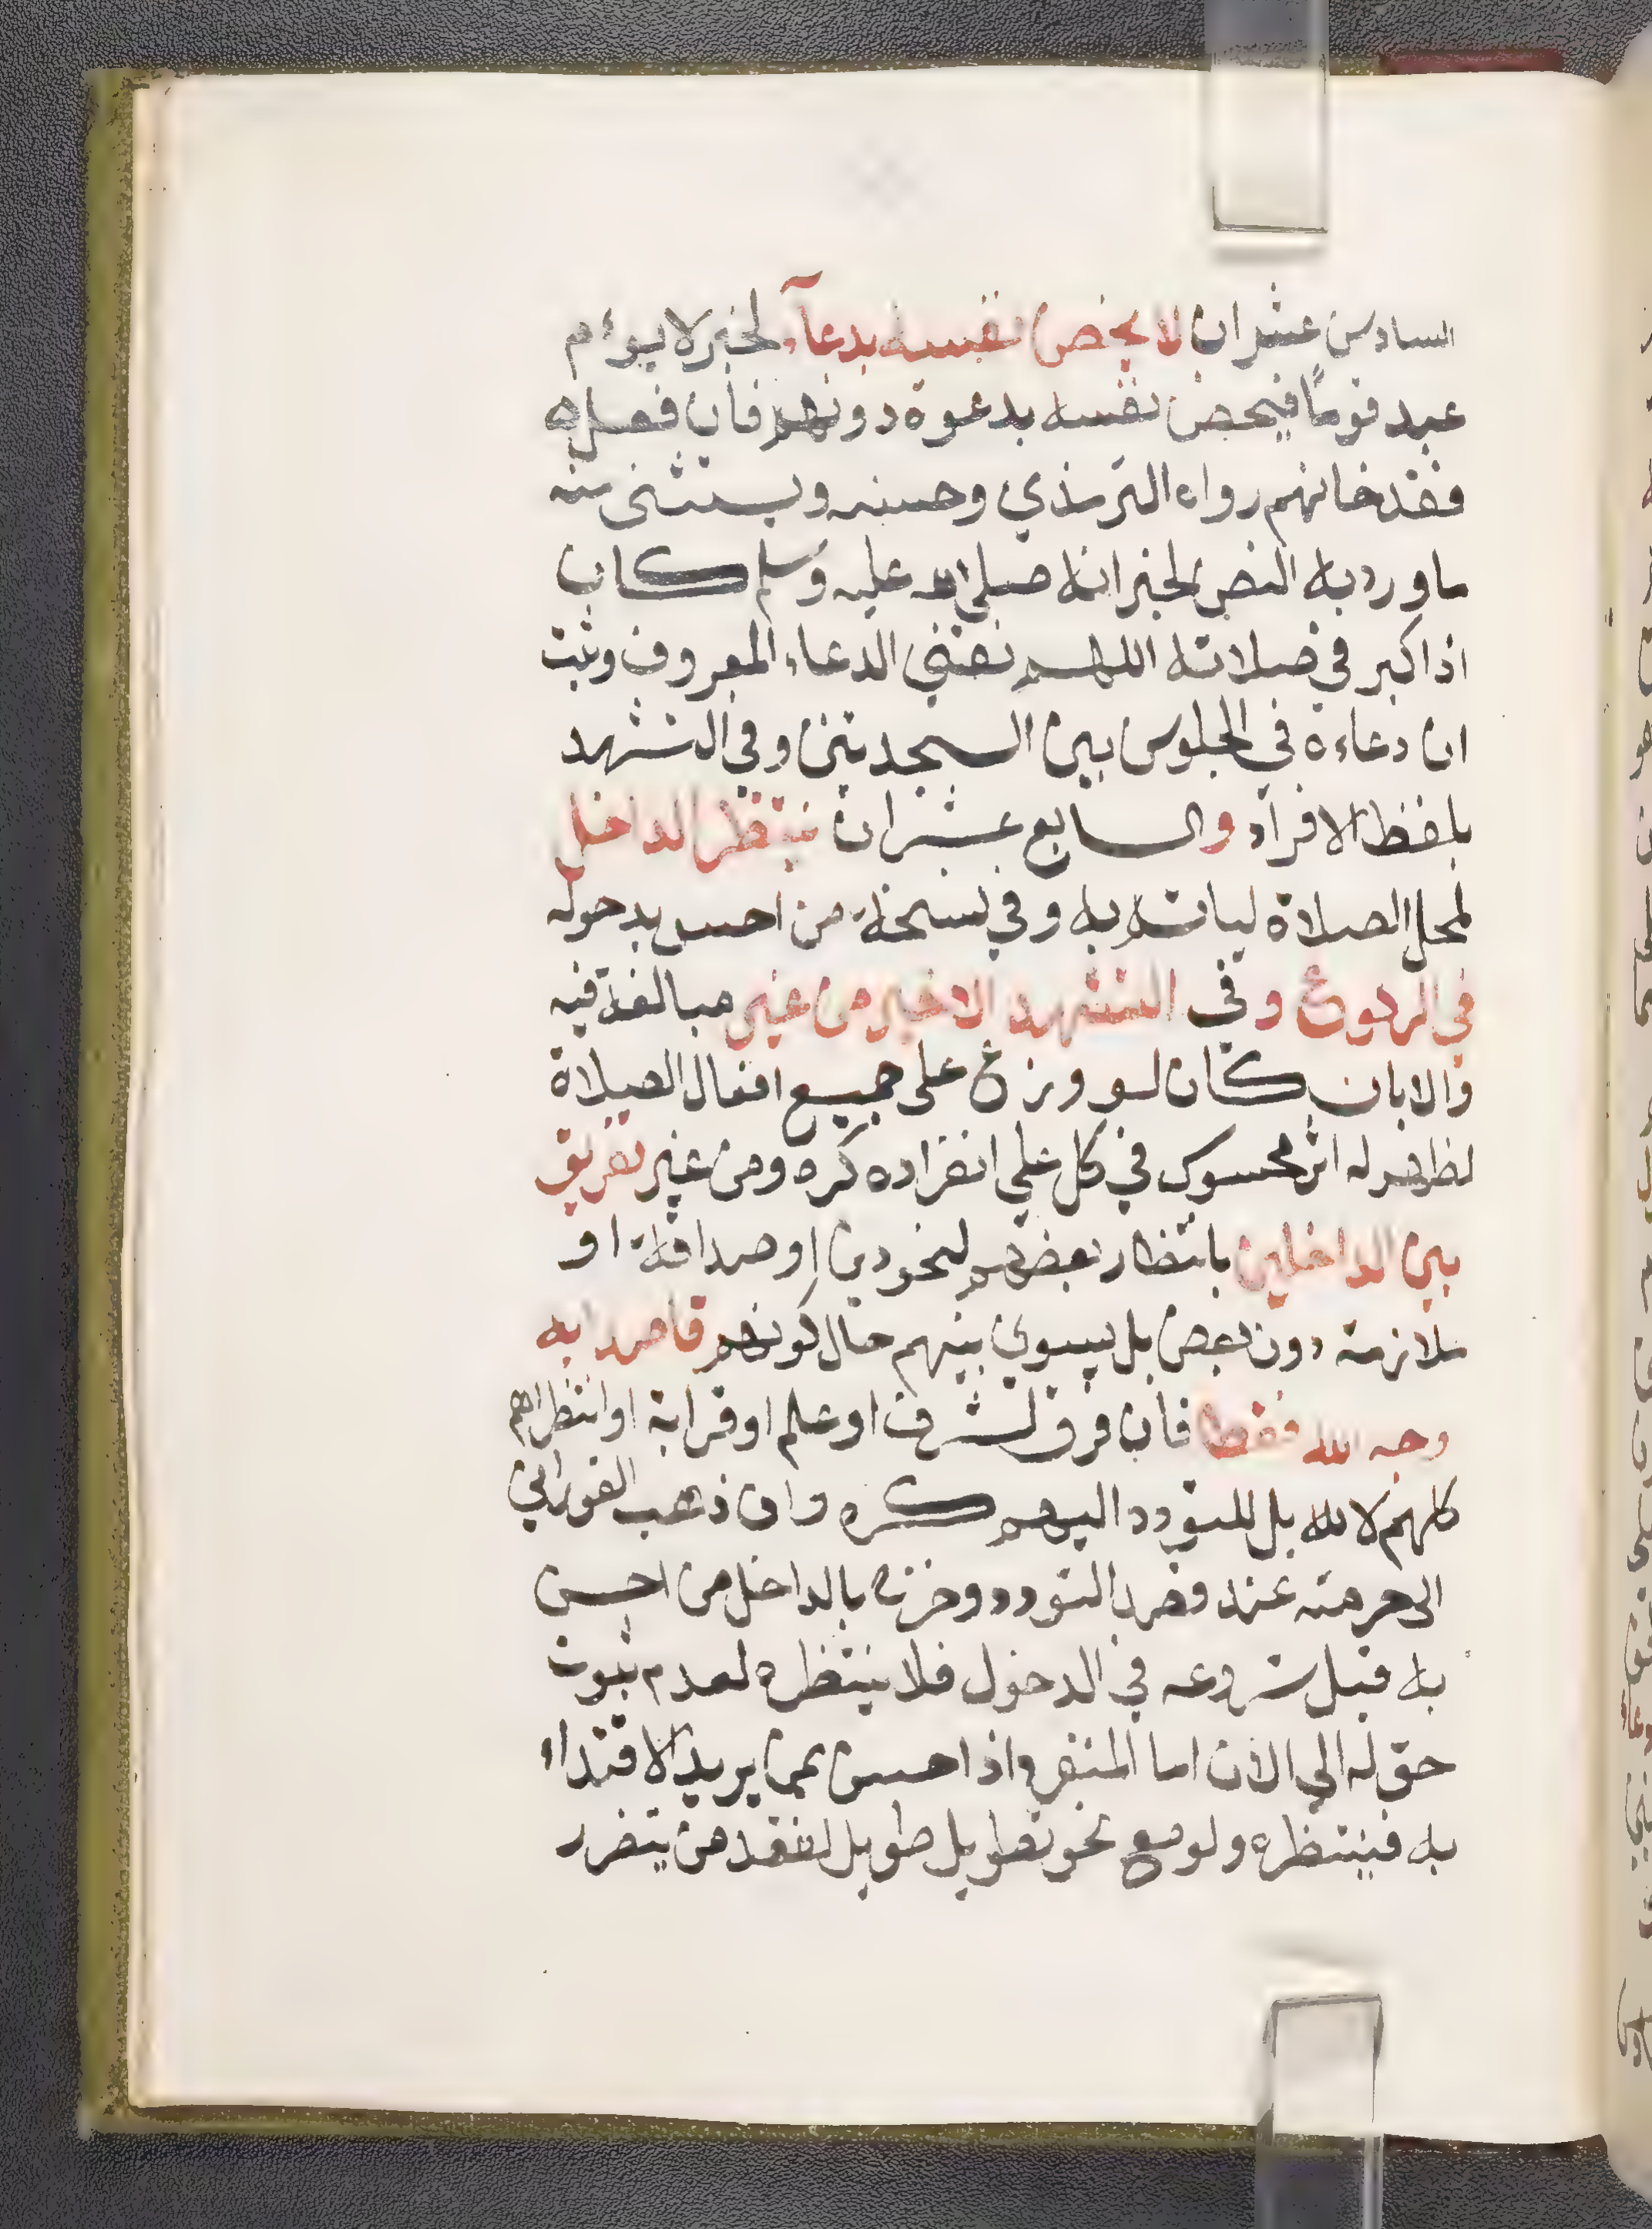 السادس عشر ان لا يخص نفسه بدعآء لخبر لا يوءم
عبد قوماً فيخص نفسه بدعوة دونهم فان فعله
فقد خانهم رواه الترمذي وحسنه ويستثنى منه
ماورد به النص لخبر انه صلى الله عليه وسلم كان
اذا كبر في صلاته اللهم نقني الدعاء المعروف وثبت
ان دعاءه في الجلوس بين السجدتين وفي التشهد
بلفظ الافراد والسابع عشر ان ينتظر الداخل
لمحل الصلاة لياتم به وفي نسخة من احس بدخوله
في الركوع وفي التشهد الاخير من غير مبالغة فيه
والابان كان لو وزع على جميع افعال الصلاة
لظهر له اثر محسوس في كل على انفراده كره ومن غير تفريق
بين الداخلين بانتظار بعضهم لنحو دين او صداقة او
ملازمة دون بعض بل يسوي بينهم حال كونهم قاصدا به
وجه الله فقط فان فرق لشرف او علم او قرابة او انتظرهم
كلهم لا لله بل للتودد اليهم كره وان ذهب الفوراني
الى حرمته عند قصد التودد وخرج بالداخل من احس
به قبل شروعه في الدخول فلا ينتظره لعدم ثبوت
حق له الى الان اما المنفرد اذا احس بمن يريد الاقتداء
به فينتظره ولو مع نحو تطويل طويل لفقد من يتضرر